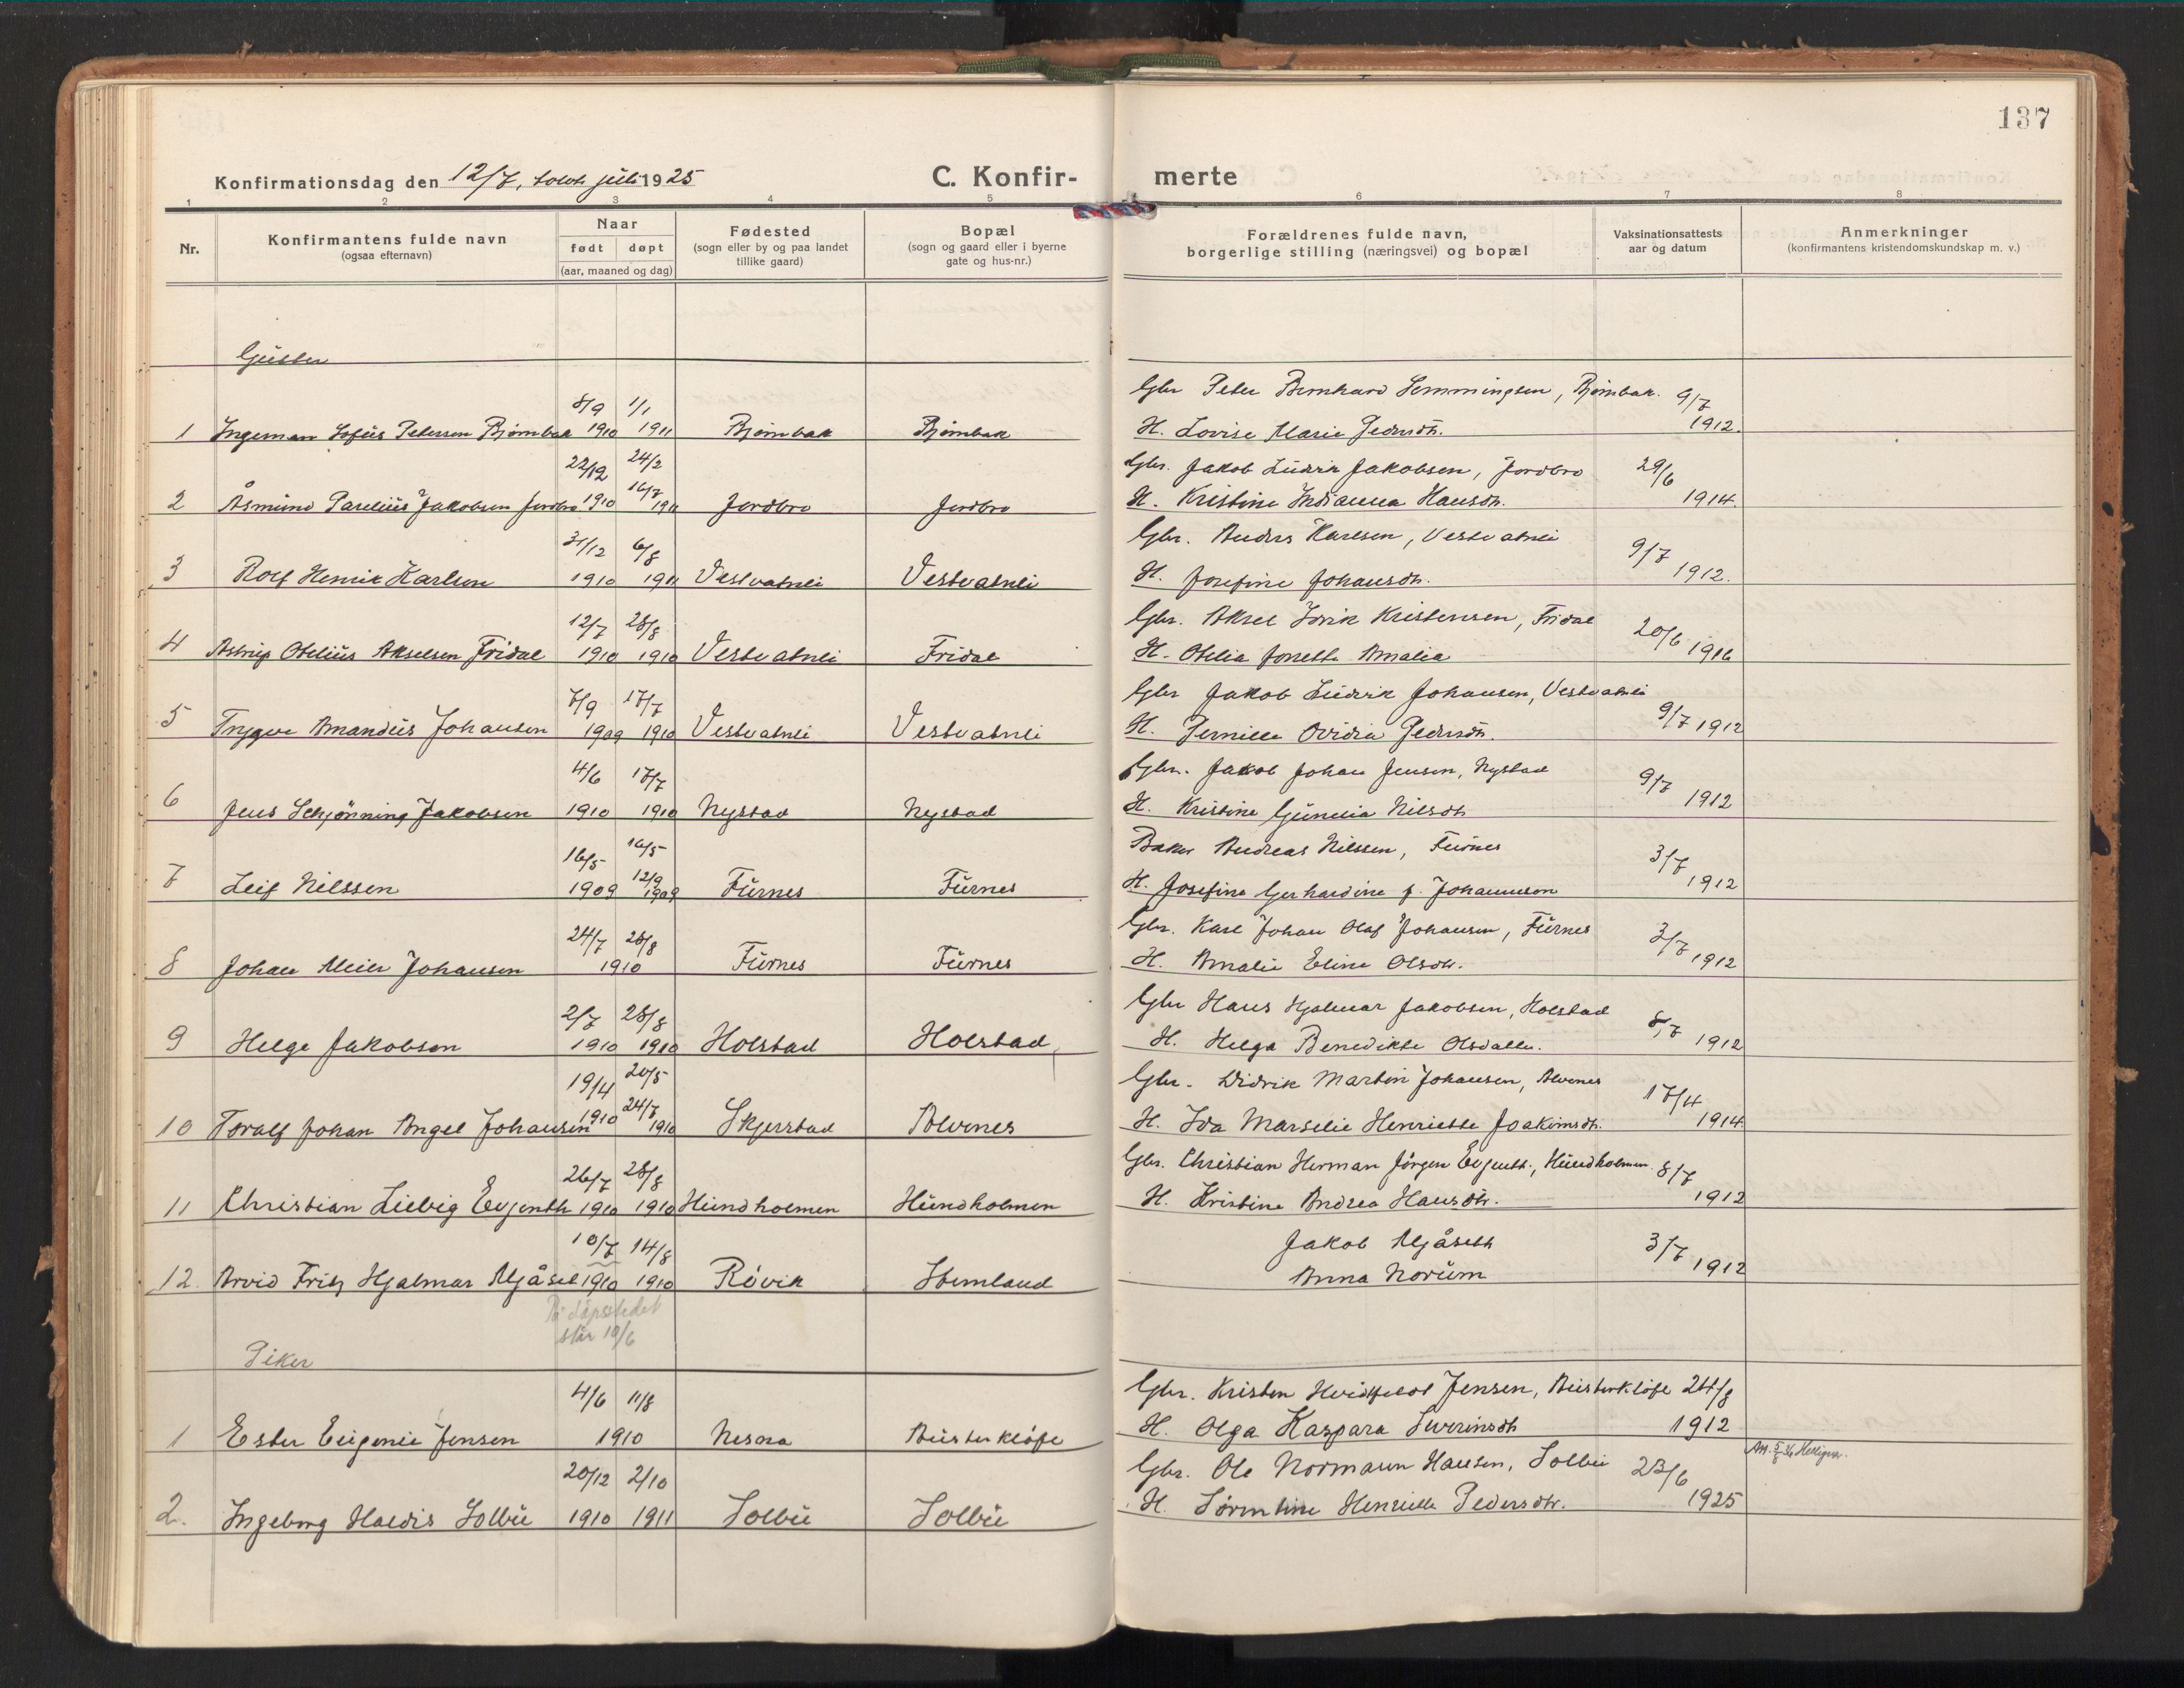 137
Konfirmationsdag den 12/7, tolvte juli 1925
C. Konfir-
merte
1 2 3 4 5 6 7 8
Nr.
Konfirmantens fulde navn
(ogsaa efternavn)
Naar
født døpt
(aar, maaned og dag)
Fødested
(sogn eller by og paa landet
tillike gaard)
Bopæl
(sogn og gaard eller i byerne
gate og hus-nr.)
Forældrenes fulde navn,
borgerlige stilling (næringsvei) og bopæl
Vaksinationsattests
aar og datum
Anmerkninger
(konfirmantens kristendomskundskap m. v.)
Gutter
8/9 1/1 Gbr Peter Bernhard Hemmingsen, Bjørnbak. 9/7
1 Ingeman Sofus Petersen Bjørnbak 1910 1911 Bjørnbak Bjørnbak H. Lovise Marie Pedersdtr. 1912.
22/12 24/2 Gbr. Jakob Ludvik Jakobsen, Jordbro 29/6
16/7
2 Åsmund Parelius Jakobsen Jordbro 1910 1911 Jordbro Jordbro H. Kristine Indianna Hansdtr. 1914.
31/12 6/8 Gbr. Anders Karlsen, Vestvatnli 9/7
3 Rolf Henrik Karlsen 1910 1911 Vestvatnli Vestvatnli H. Josefine Johansdtr. 1912.
12/7 28/8 Gbr. Aksel Edvik Kristensen, Fridal 20/6
4 Astrup Otelius Akselsen Fridal 1910 1910 Vestvatnli Fridal H. Otelia Jonette Amalia 1916
7/9 17/7 Gbr Jakob Ludvik Johansen, Vestvatnli
5 Trygve Amandus Johansen 1909 1910 Vestvatnli Vestvatnli H. Pernille Ovidia Pedersdtr. 9/7 1912
4/6 17/7 Gbr. Jakob Johan Jensen, Nystad 9/7
6 Jens Schjönning Jakobsen 1910 1910 Nystad Nystad H. Kristine Gunelia Nilsdtr 1912
16/5 16/5 Baker Andreas Nilssen, Furnes 3/7
12/9
7 Leif Nilssen 1909 1909 Furnes Furnes H. Josefine Gerhardine f. Johannson 1912
24/7 28/8 Gbr. Karl Johan Olaf Johansen, Furnes 3/7
8 Johan Meier Johansen 1910 Furnes Furnes H. Amalie Eline Olsdtr. 1912
2/7 28/8 Gbr Hans Hjalmar Jakobsen, Holstad 8/7
9 Helge Jakobsen 1910 1910 Holstad Holstad H. Helga Benedikte Olsdatter. 1912
19/4 20/5 Gbr. Didrik Martin Johansen, Alvenes 17/4
24/7
10 Toralf Johan Angel Johansen 1910 1910 Skjerstad Alvenes H. Ida Marselie Henriette Joakimsdtr. 1914
26/7 28/8 Gbr. Christian Herman Jörgen Evjenth., Hundholmen 8/7
11 Christian Liebig Evjenth 1910 1910 Hundholmen Hundholmen H. Kristine Andrea Hansdtr. 1912
10/7 14/8 Jakob Mjåseth 3/7
12. Arvid Fritz Hjalmar Mjåset 1910 1910 Røvik Stemland Anna Norum 1912
På dåpsstedet
står 10/6
Piker
4/6 11/8 Gbr. Kristen Hvidfeldt Jensen, Austerkløft 24/8
1 Ester Eugenie Jensen 1910 Nesna Austerkløft H. Olga Kaspara Sverinsdtr 1912
20/12 2/10 Gbr. Ole Normann Hansen, Solbu 23/6
2. Ingeborg Haldis Solbu 1910 1911 Solbu Solbu H. Sörentine Henrielle Pedersdtr. 1925